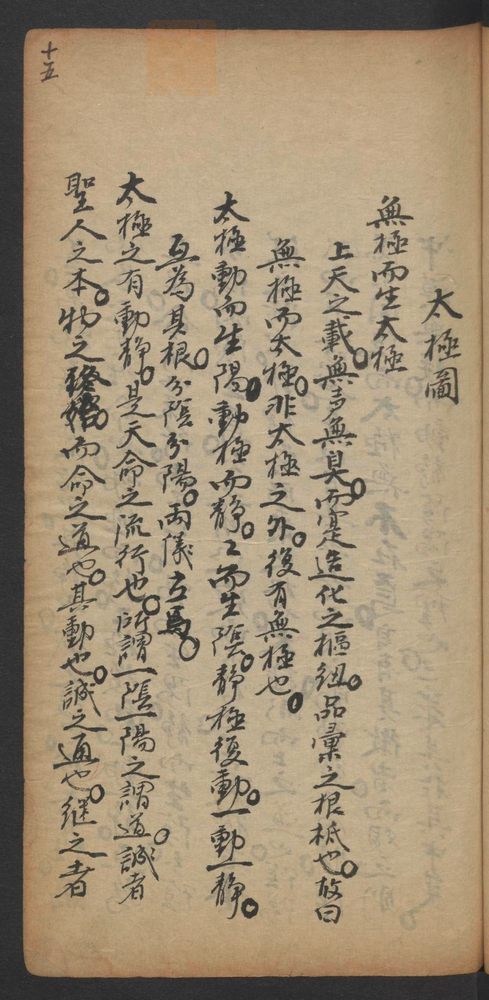 十五
太極圖
無極而生太極
上天之載。無声無臭。而寔造化之樞紐。品彙之根柢也。故曰
無極而太極。非太極之外。復有無極也。
太極動而生陽。動極而靜。〻而生陰。靜極復動。一動一靜。
互為其根。分陰分陽。兩儀立焉。
太極之有動靜。是天命之流行也。所謂一陰一陽之謂道。誠者
聖人之本。物之終始。而命之道也。其動也。誠之通也。継之者